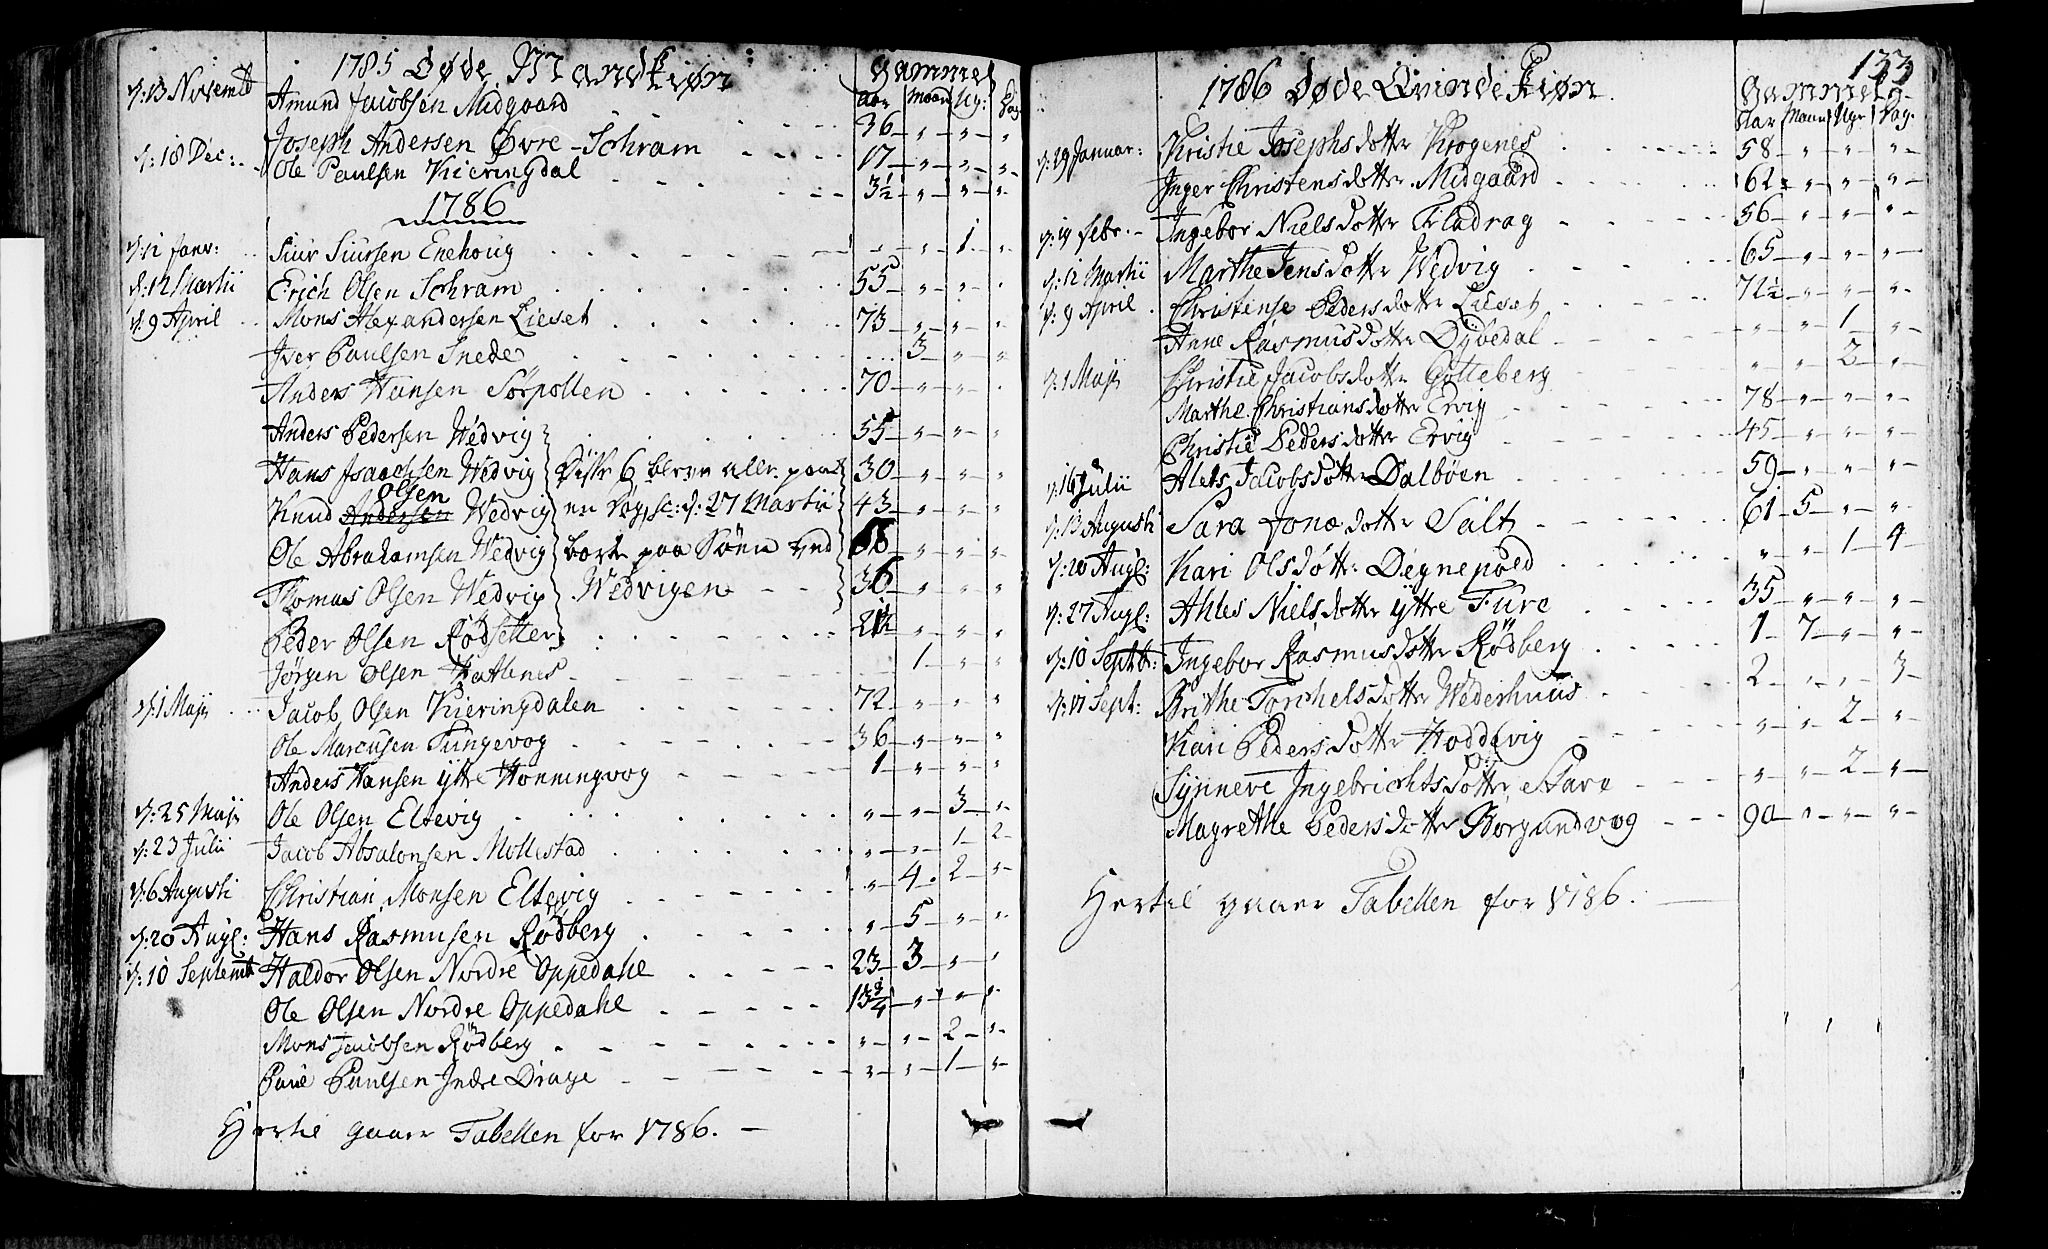 1785 Døde Mandkiøn Gammel
Aar Maan: Ug: Dag
d: 13 Novemb Amund Jacobsen Midgaard 36 " " "
Joseph Andersen Øvre-Schram 17 " " "
d: 18 Dec: Ole Paulsen Kieringdal 3½ " " "
1786
d: 12 Janv: Siur Siursen Enehoug " " 1 "
d: 12 Martii Erich Olsen Schram 55 " " "
d: 9 April Mons Alexandersen Lieset 73 " " "
Iver Paulsen Snede 3 " "
Anders Hansen Sørpollen 70 " "
Anders Pedersen Wedvig 55 " " "
Hans Isaachsen Wedvig Disse 6 bleve alle paa 30 " " "
Olsen
Knud Andersen Wedvig en Dag, sc: d: 27 Martii 43 " " "
Ole Abrahamsen Wedvig borte paa Søen ved " " "
Thomas Olsen Wedvig Wedvigen 36 " " "
Peder Olsen Rødsetter 21½ " " "
Jørgen Olsen Hatlenes 1 " "
d: 1 Maji Jacob Olsen Kieringdalen 72 " " "
Ole Marcusen Tungevog 36 " " "
Anders Hansen ytte Honningvog 1 " " "
d: 25 Maji Ole Olsen Eltevig " " 3 "
d: 23 Julii Jacob Absalonsen Mollestad " " 1 2
d: 6 Augusti Christian Monsen Eltevig " 4 2 "
d: 20 Aug: Hans Rasmusen Rødberg " 5 " "
d: 10 Septemb Haldor Olsen Nordre Oppedahl 23 3 " "
Ole Olsen Nordre Oppedahl " " "
Mons Jacobsen Rødberg " " 2 "
Paul Paulsen Indre Drage " " 1 "
Hertil gaaer Tabellen for 1786.
133
1786 Døde Qvindekiøn Gammel
Aar Maan Uge Dag.
d: 29 Januar: Kristie Josephsdotter Krogenes 58 " " "
Inger Christensdotter Midgaard 62 " " "
d: 19 Febr. Ingebor Nielsdotter Fladrag 56 " " "
d: 12 Martii Marthe Jensdotter Wedvig 65 " " "
d: 9 April Christense Pedersdotter Lieset 72½ " " "
Anne Rasmusdotter Dybedal " " 1 "
d: 1 Maji Christie Jacobsdotter Gotteberg " " 2 "
Marthe Christiansdotter Ervig 78 " " "
Christie Pedersdotter Ervig 45 " " "
d: 16 Julii Alets Jacobsdotter Dalbøen 59 " " "
d: 13 Augusti Sara Jonædotter Salt 61 5 " "
d: 20 Aug: Kari Olsdotter Degnepoed " " 1 4
d: 27 Aug: Ahles Nielsdotter ytre Fure 35 " " "
d: 10 Septb: Ingebor Rasmusdotter Rødberg 1 7 " "
d: 17 Sept: Brithe Torchelsdotter Wederhuus 2 " " 3
Kari Pedersdotter Hoddevig " " 2 "
Synneve Ingebrichtsdotter Skare " " 2 "
Magrethe Pedersdotter Borgundvog 90 " " "
Hertil gaaer Tabellen for 1786.